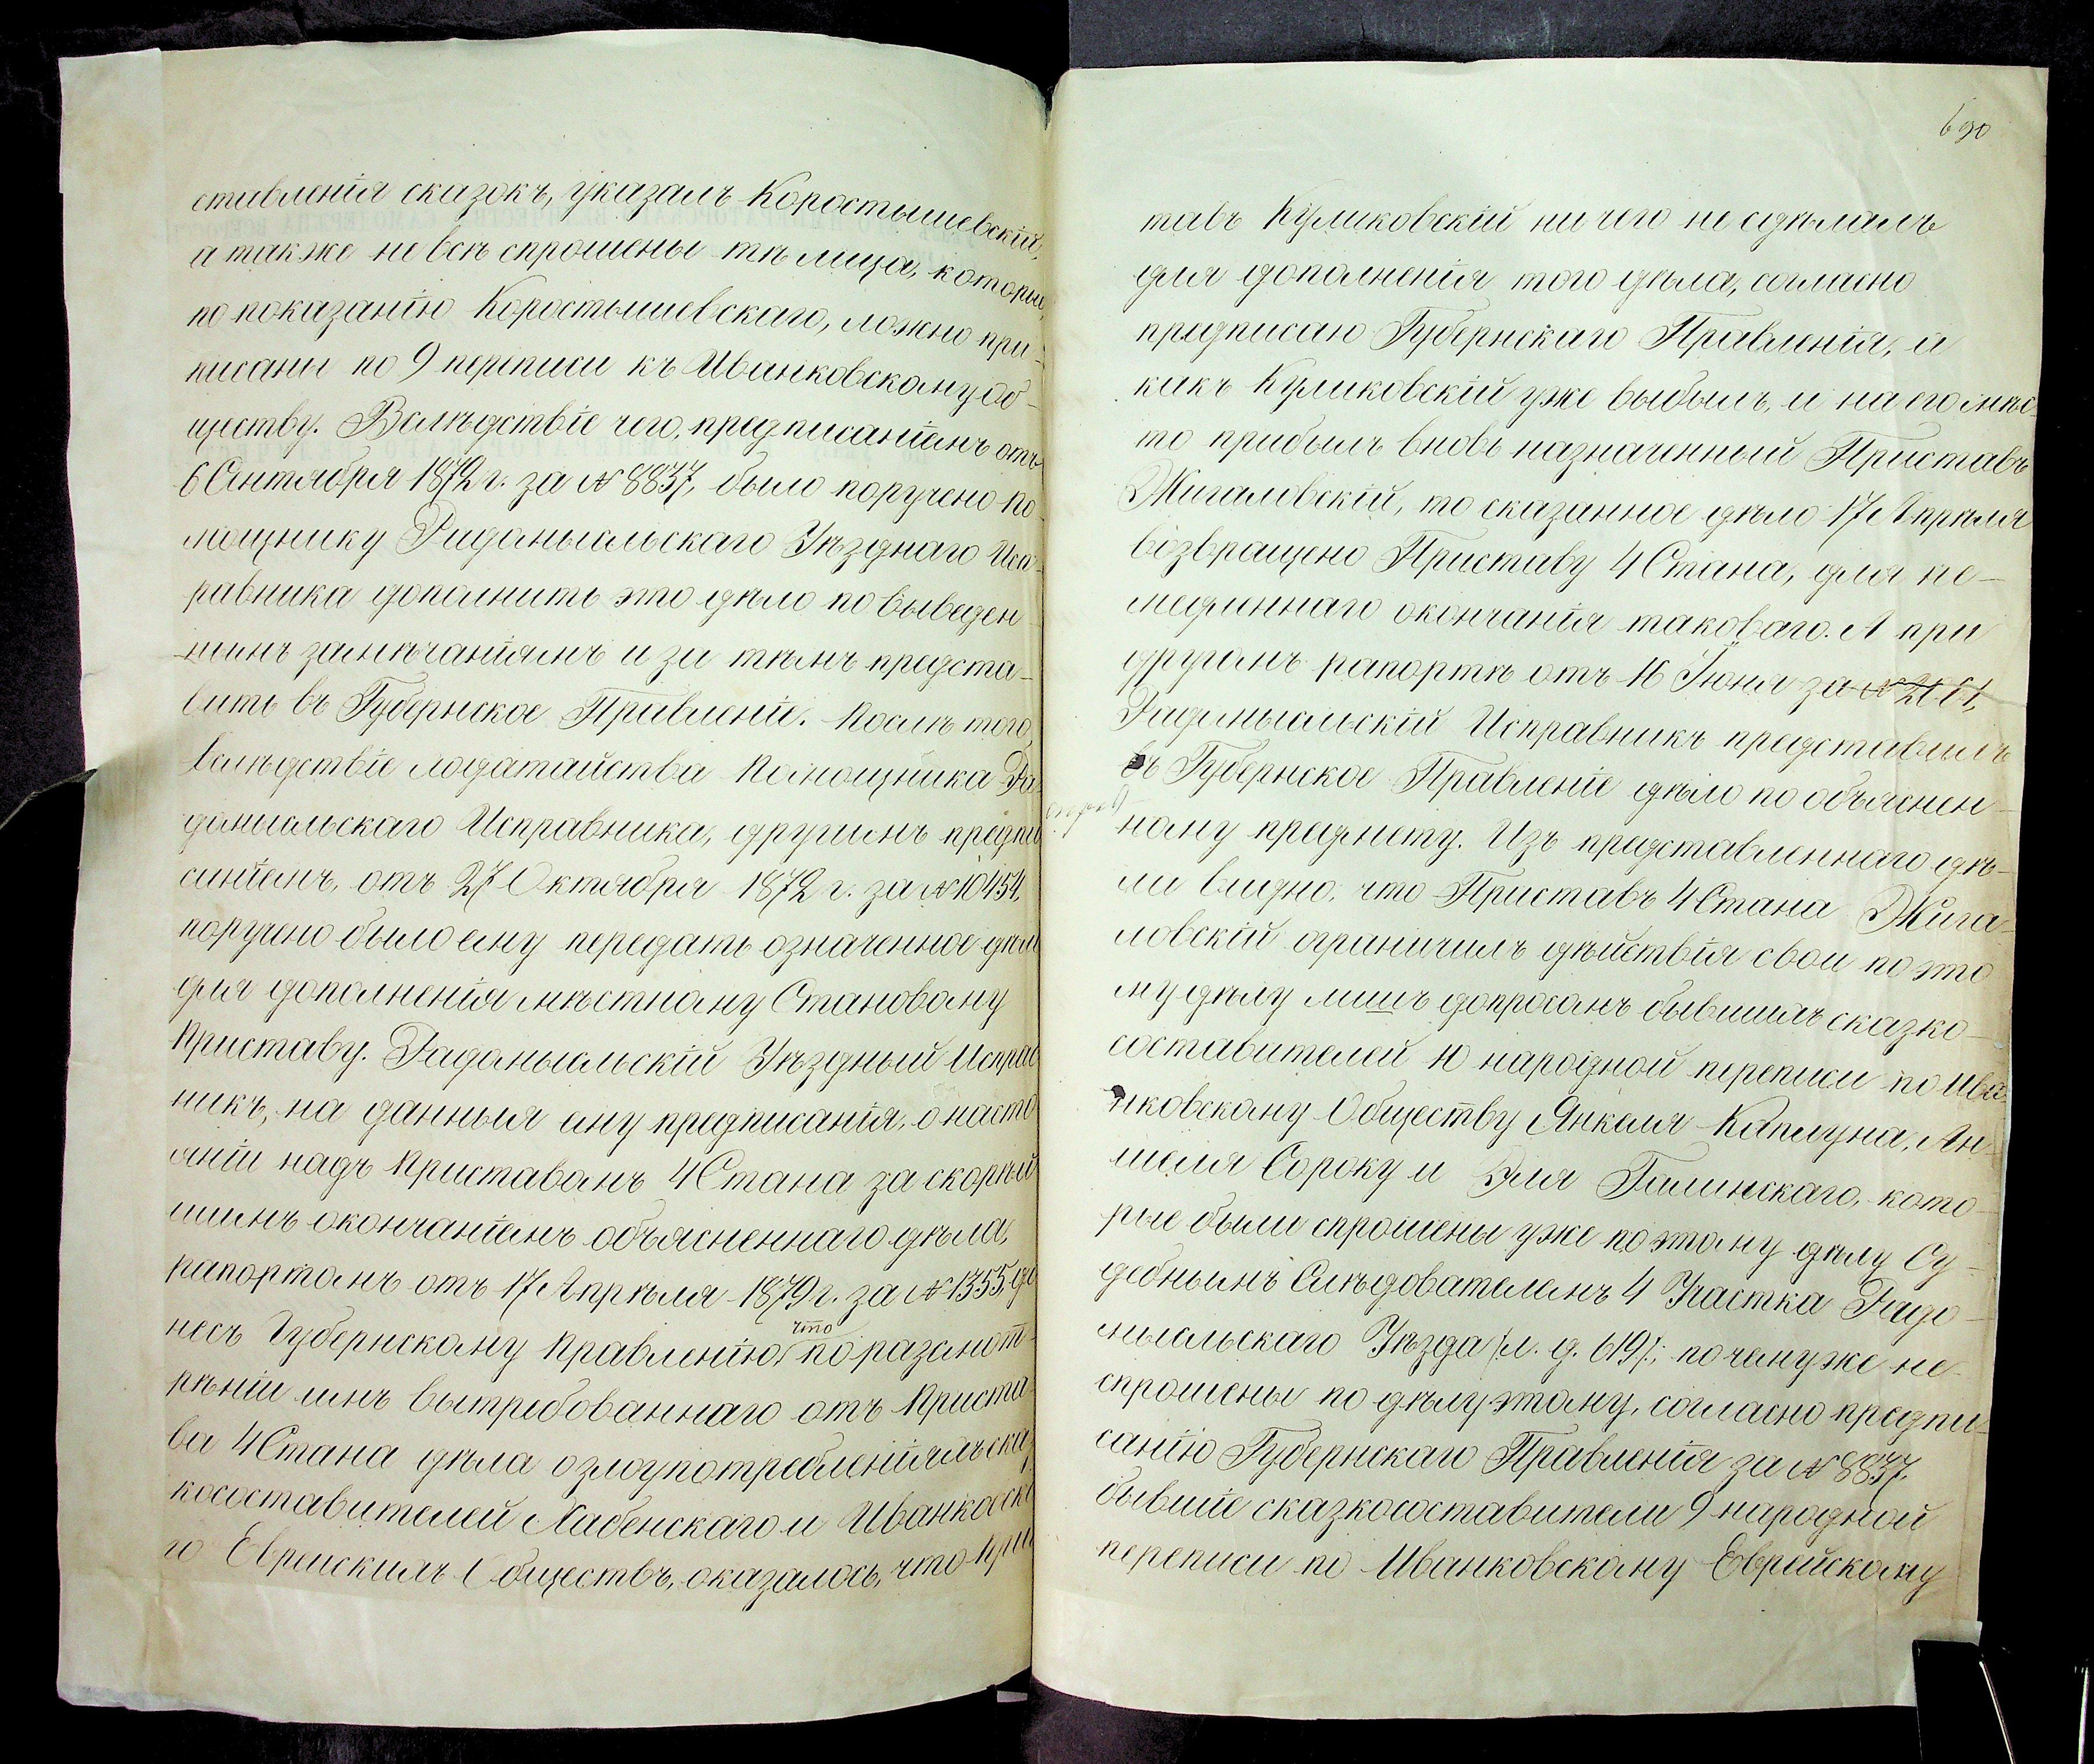 ставленія сказокъ, указалъ Коростышевскій,
а также не всѣ спрошены тѣ лица, которыя,
по показанію Коростышевскаго, ложно при-
писаны по 9 переписи къ Иванковскому об-
ществу. Вслѣдствіе чего, предписаніемъ отъ
6 Сентября 1872 г. за № 8837, было поручено По-
мощнику Радомысльскаго Уѣзднаго Исп-
равника дополнить это дѣло по выведен-
нымъ замѣчаніямъ и за тѣмъ предста-
вить въ Губернское Правленіе. Послѣ того,
вслѣдствіе ходатайства Помощника Ра-
домысльскаго Исправника, другимъ предпи
саніемъ, отъ 27 Октября 1872 г. за № 10454,
поручено было ему передать означенное дѣло
для дополненія мѣстному Становому
Приставу. Радомысльскій Уѣздный Исправ
никъ, на данныя ему предписанія, о насто
яніи надъ Приставомъ 4 Стана за скорѣй
шимъ окончаніемъ объясненнаго дѣла,
рапортомъ отъ 17 Апрѣля 1879 г. за № 1355, до
несъ Губернскому Правленію, что по разсмот-
рѣніи имъ вытребованнаго отъ Приста-
ва 4 Стана дѣла о злоупотребленіяхъ сказ
косоставителей Хабенскаго и Иванковска
го Еврейскихъ Обществъ, оказалось, что Прис
690
тавъ Куликовскій ни чего не сдѣлалъ
для дополненія того дѣла, согласно
предписаю Губернскаго Правленія, а
какъ Куликовскій уже выбылъ, и на его мѣс
то прибылъ вновь назначенный Приставъ
Жигаловскій, то сказанное дѣло 17 Апрѣля
возвращено Приставу 4 Стана, для не-
медленнаго окончанія таковаго. А при
другомъ рапортѣ отъ 16 Іюня за № 2061,
Радомысльскій Исправникъ представилъ
въ Губернское Правленіе дѣло по объяснен-
ному предмету. Изъ представленнаго дѣ-
ла видно, что Приставъ 4 Стана Жига-
ловскій ограничилъ дѣйствія свои по это
му дѣлу лишъ допросомъ бывшихъ сказко-
составителей 10 народной переписи по Ива-
нковскому Обществу Янкеля Каплуна, Ан-
шеля Сороку и Эля Галинскаго, кото-
рые были спрошены уже по этому дѣлу Су-
дебнымъ Слѣдователемъ 4 Участка Радо-
мысльскаго Уѣзда /:л. д. 619:/; по чему же не
спрошены по дѣлу этому, согласно предпи-
санію Губернскаго Правленія за № 8837,
бывшіе сказкосоставители 9 народной
переписи по Иванковскому Еврейскому